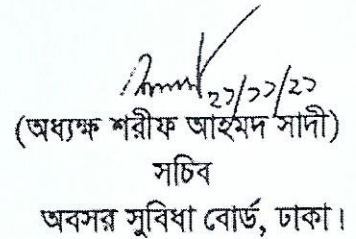 ২১/১১/২১
(অধ্যক্ষ শরীফ আহমদ সাদী)
সচিব
অবসর সুবিধা বোর্ড, ঢাকা।